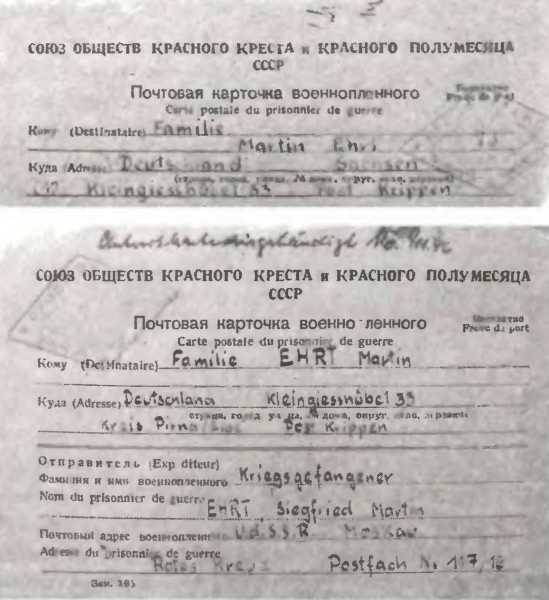 СОЮЗ ОБЩЕСТВ КРАСНОГО КРЕСТА и КРАСНОГО ПОЛУМЕСЯЦА
СССР
Почтовая карточка военнопленного
Carte postale du prisonnier de guerre
Кому (Destinataire) Familie
Martin Ehrt
Куда (Adresse) Deutschland Sachsen
Kleingiesshübel 33 Post Krippen
СОЮЗ ОБЩЕСТВ КРАСНОГО КРЕСТА и КРАСНОГО ПОЛУМЕСЯЦА
СССР
Почтовая карточка военнопленного
Бесплатно
Carte postale du prisonnier de guerre
Franc de port
Кому (Destinataire) Familie EHRT Martin
Куда (Adresse) Deutschland Kleingiesshübel 33
страна, город, улица, № дома, округ, село, деревня
Kreis Pirna Post Krippen
Отправитель (Expéditeur)
Фамилия и имя военнопленного Kriegsgefangener
Nom du prisonnier de guerre
EHRT, Siegfried Martin
Почтовый адрес военнопленного U.d.S.S.R. Moskau
Adresse du prisonnier de guerre
Rotes Kreuz Postfach No 117,12
Зак. 185